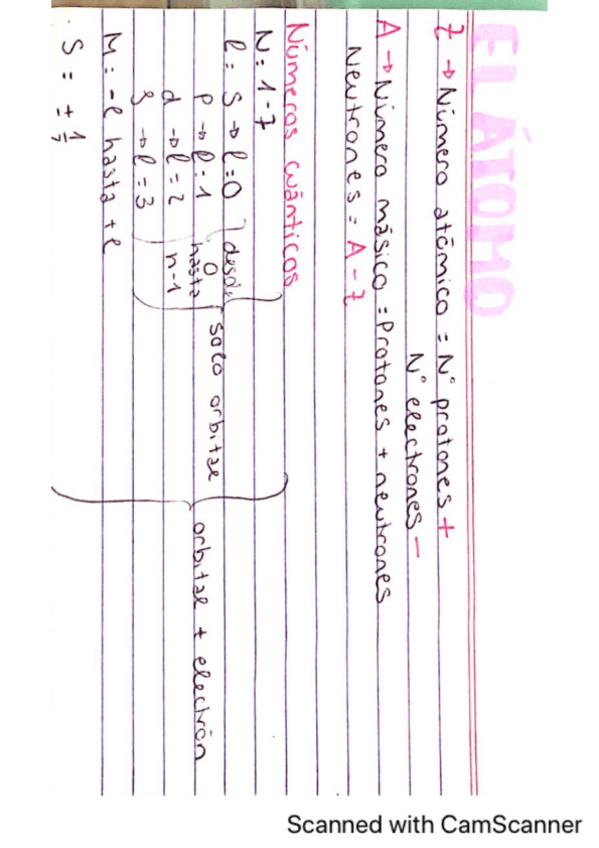 EL ÁTOMO
Z → Número atómico = Nº protones +
Nº electrones -
A → Número másico = Protones + neutrones
Neutrones = A - Z
Números cuánticos
N: 1-7
l: S → l=0 desde
p → l=1 0 hasta
d → l=2 n-1
f → l=3
solo orbital
M: -l hasta +l
S = ± 1
orbital + electrón
Scanned with CamScanner